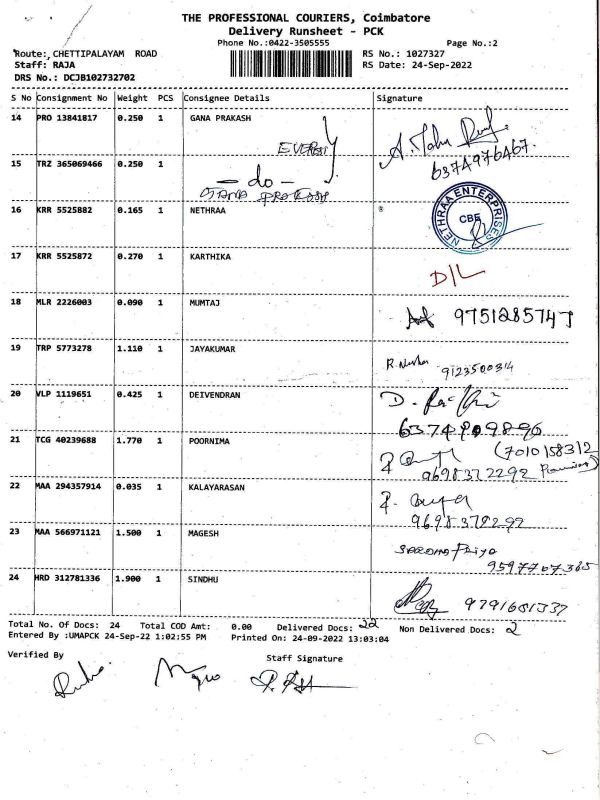 THE PROFESSIONAL COURIERS, Coimbatore
Delivery Runsheet - PCK
Phone No.:0422-3505555 Page No.:2
Route: CHETTIPALAYAM ROAD RS No.: 1027327
Staff: RAJA RS Date: 24-Sep-2022
DRS No.: DCJB102732702
S No Consignment No Weight PCS Consignee Details Signature
14 PRO 13841817 0.250 1 GANA PRAKASH
6374976467.
15 TRZ 365069466 0.250 1 - do -
16 KRR 5525882 0.165 1 NETHRAA NETHRAA ENTERPRISES CBE
17 KRR 5525872 0.270 1 KARTHIKA D/L
18 MLR 2226003 0.090 1 MUMTAJ 9751285747
19 TRP 5773278 1.110 1 JAYAKUMAR 9123500314
20 VLP 1119651 0.425 1 DEIVENDRAN
21 TCG 40239688 1.770 1 POORNIMA (7010158312
9698372292
22 MAA 294357914 0.035 1 KALAYARASAN
9698372292
23 MAA 566971121 1.500 1 MAGESH
9597707365
24 HRD 312781336 1.900 1 SINDHU 9791681337
Total No. Of Docs: 24 Total COD Amt: 0.00 Delivered Docs: 22 Non Delivered Docs: 2
Entered By :UMAPCK 24-Sep-22 1:02:55 PM Printed On: 24-09-2022 13:03:04
Verified By Staff Signature